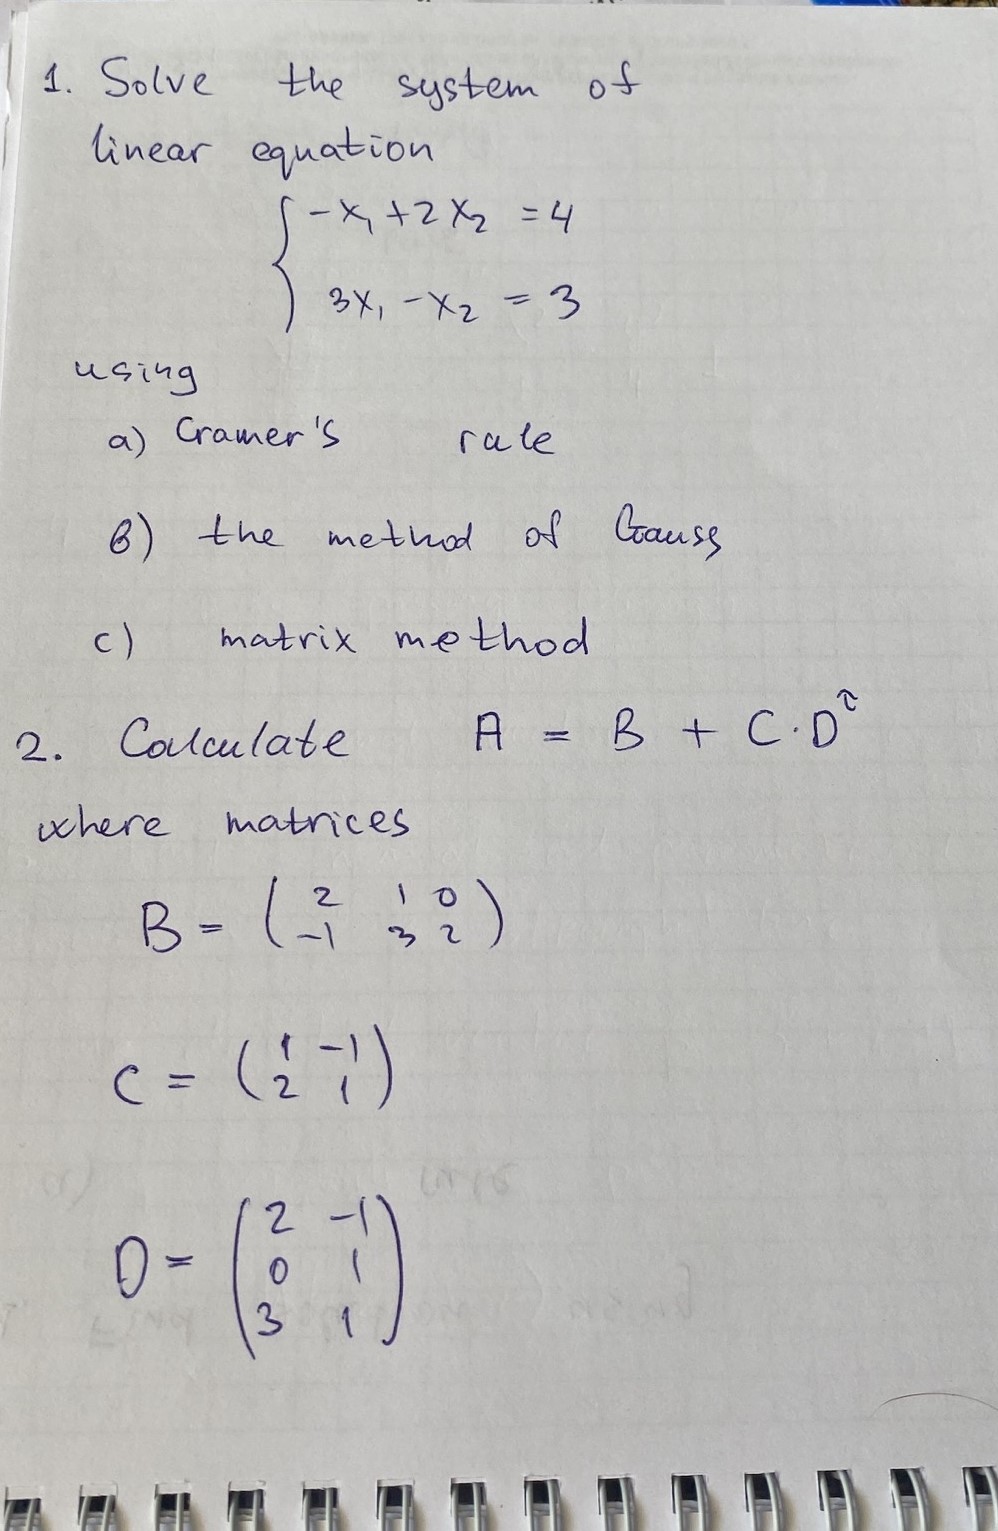 1. Solve the system of
linear equation
{ -x₁ + 2x₂ = 4
3x₁ - x₂ = 3
using
a) Cramer's rule
b) the method of Gauss
c) matrix method
2. Calculate A = B + C·Dᵀ
where matrices
B = ( 2 1 0
-1 3 2 )
C = ( 1 -1
2 1 )
D = ( 2 -1
0 1
3 1 )